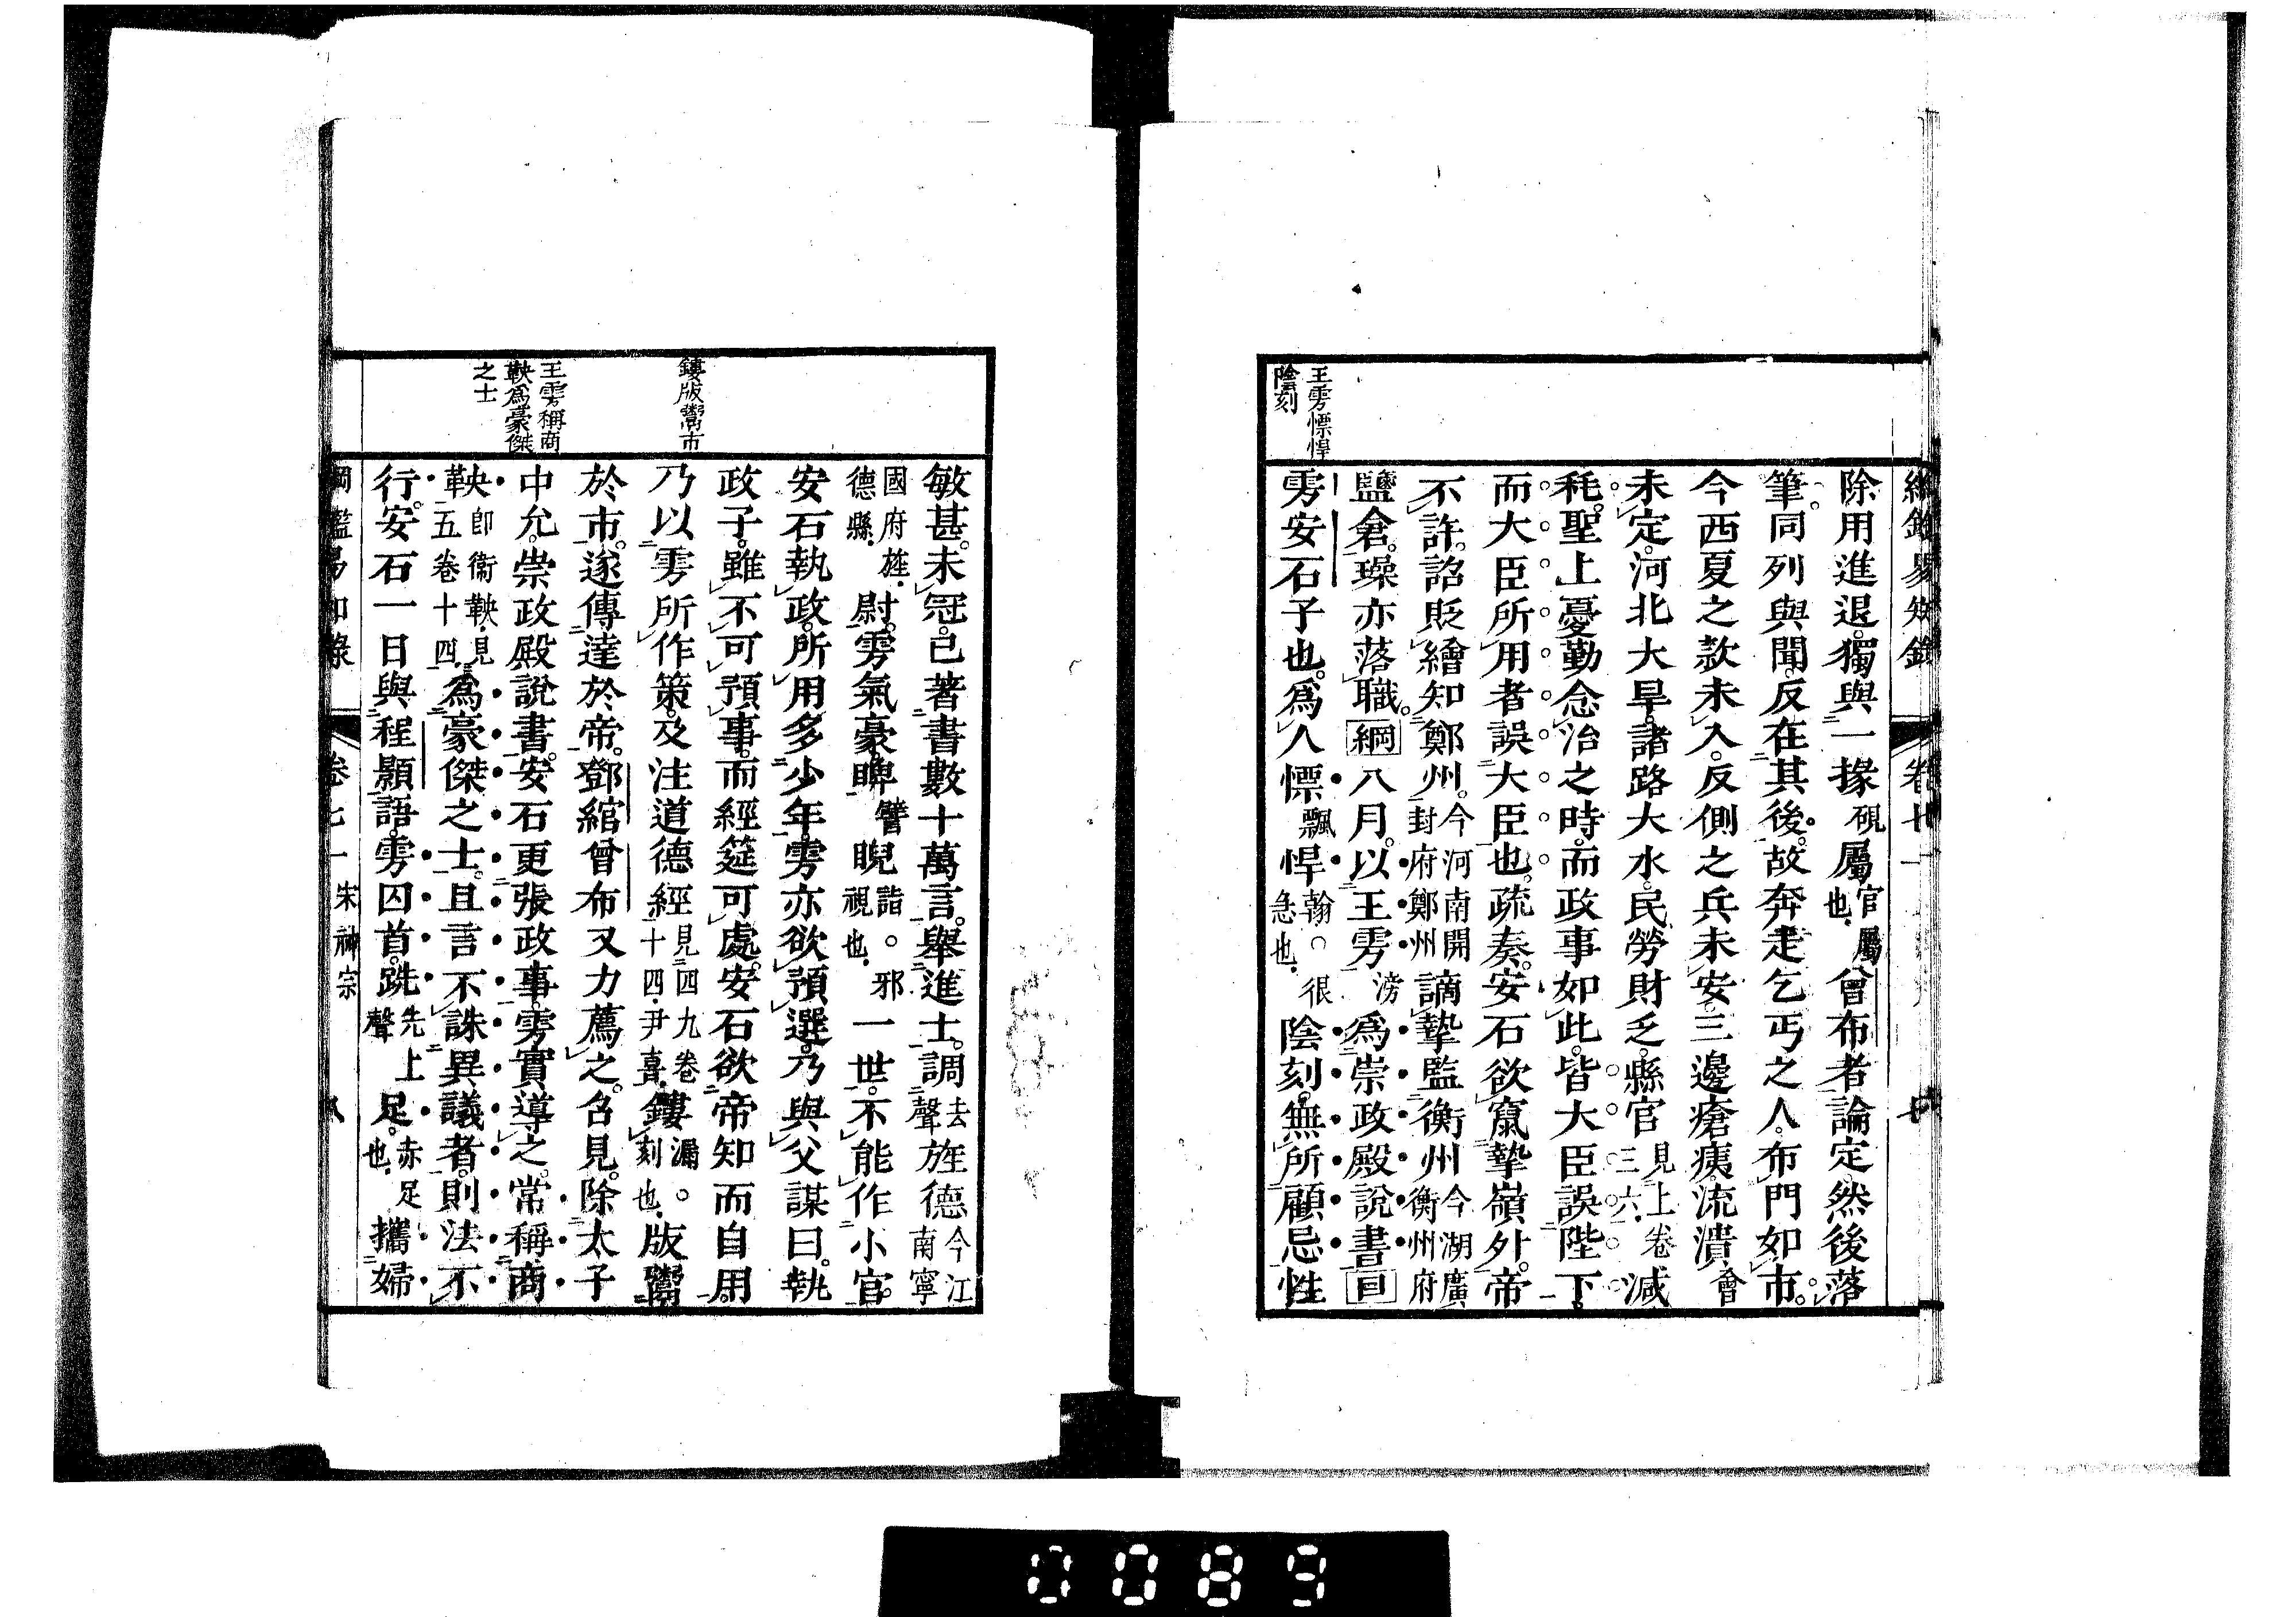 綱鑑易知錄 卷七十一
王雱慓悍
陰刻
除用進退獨與一掾硯屬官屬也曾布者論定然後落
筆同列與聞反在其後故奔走乞丐之人布門如市
今西夏之款未入反側之兵未安三邊瘡痍流潰會
未定河北大旱諸路大水民勞財乏縣官見上卷三六減
耗聖上憂勤念治之時而政事如此皆大臣誤陛下
而大臣所用者誤大臣也疏奏安石欲竄摯嶺外帝
不許詔貶繪知鄭州今河南開封府鄭州謫摯監衡州今湖廣衡州府
鹽倉璪亦落職綱八月以王雱滂爲崇政殿說書目
雱安石子也爲人慓飄悍翰○很急也陰刻無所顧忌性
鏤版鬻市
王雱稱商
鞅爲豪傑
之士
敏甚未冠已著書數十萬言舉進士調去聲旌德今江南寧
國府旌德縣尉雱氣豪睥譬睨詣○邪視也一世不能作小官
安石執政所用多少年雱亦欲預選乃與父謀曰執
政子雖不可預事而經筵可處安石欲帝知而自用
乃以雱所作策及注道德經見四九卷十四尹喜鏤漏○刻也版鬻
於市遂傳達於帝鄧綰曾布又力薦之召見除太子
中允崇政殿說書安石更張政事雱實導之常稱商
鞅卽衞鞅見五卷十四爲豪傑之士且言不誅異議者則法不
行安石一日與程顥語雱囚首跣先上聲足赤足也攜婦
綱鑑易知錄 卷七一 宋神宗 八
0089